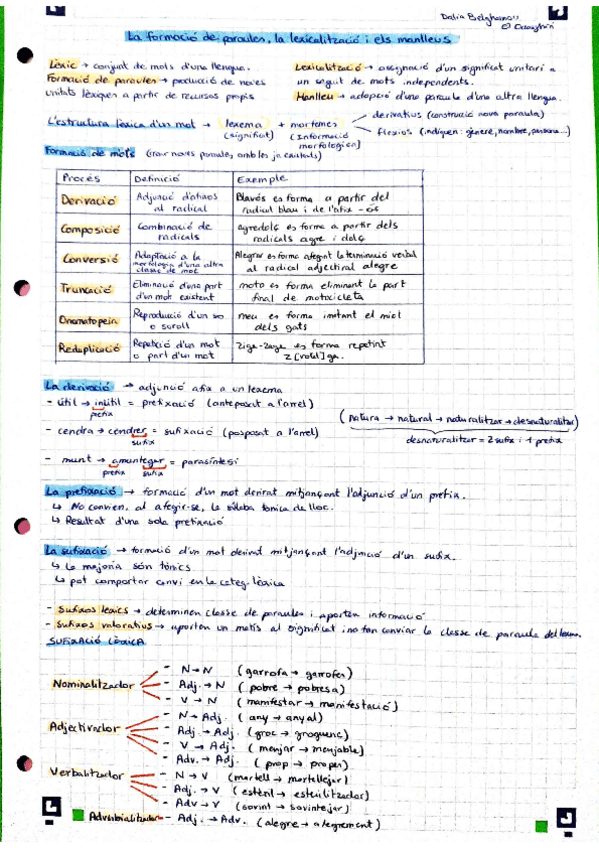 Dalia Belghanou
La formació de paraules, la lexicalització i els manlleus
Lèxic → conjunt de mots d'una llengua.
Formació de paraules → producció de noves
unitats lèxiques a partir de recursos propis
Lexicalització → assignació d'un significat unitari a
un seguit de mots independents.
Manlleu → adopció d'una paraula d'una altra llengua.
L'estructura lèxica d'un mot → lexema + morfemes
(significat) (Informació morfològica)
derivatius (construcció nova paraula)
flexius (indiquen: gènere, nombre, persona...)
Formació de mots (crear noves paraules amb les ja existents)
Procés Definició Exemple
Derivació Adjunció d'afixos al radical Blavós es forma a partir del radical blau i de l'afix -ós
Composició Combinació de radicals agredolç es forma a partir dels radicals agre i dolç
Conversió Adaptació a la morfologia d'una altra classe de mot Alegrar es forma afegint la terminació verbal al radical adjectival alegre
Truncació Eliminació d'una part d'un mot existent moto es forma eliminant la part final de motocicleta
Onomatopeia Reproducció d'un so o soroll meu es forma imitant el miol dels gats
Reduplicació Repetició d'un mot o part d'un mot Ziga-zaga es forma repetint z[vocal]ga.
La derivació → adjunció afix a un lexema
- útil → inútil = prefixació (anteposat a l'arrel)
prefix
(natura → natural → naturalitzar → desnaturalitzar)
desnaturalitzar = 2 sufix i 1 prefix
- cendra → cendrer = sufixació (posposat a l'arrel)
sufix
- munt → amuntegar = parasíntesi
prefix sufix
La prefixació → formació d'un mot derivat mitjançant l'adjunció d'un prefix.
↳ No canvien, al afegir-se, la síl·laba tònica de lloc.
↳ Resultat d'una sola prefixació
La sufixació → formació d'un mot derivat mitjançant l'adjunció d'un sufix.
↳ La majoria són tònics
↳ pot comportar canvi en la categ. lèxica
- Sufixos lèxics → determinen classe de paraules i aporten informació
- Sufixos valoratius → aporten un matís al significat i no fan canviar la classe de paraula del
SUFIXACIÓ LÈXICA
Nominalitzador
- N → N (garrofa → garrofer)
- Adj. → N (pobre → pobresa)
- V → N (manifestar → manifestació)
Adjectivador
- N → Adj. (any → anyal)
- Adj. → Adj. (groc → groguenc)
- V → Adj. (menjar → menjable)
- Adv. → Adj. (prop → proper)
Verbalitzador
- N → V (martell → martellejar)
- Adj. → V (estèril → esterilitzador)
- Adv → V (sovint → sovintejar)
Adverbialitzador - Adj. → Adv. (alegre → alegrement)